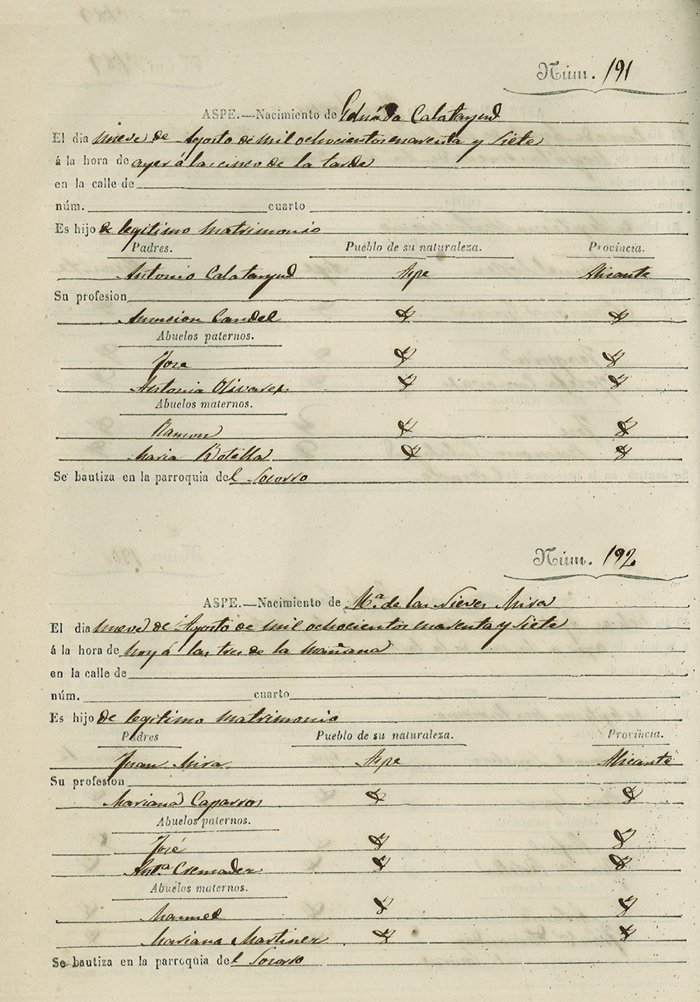 Núm. 191
ASPE.—Nacimiento de Calatayud
El dia nueve de Agosto de mil ochocientos cuarenta y siete
á la hora de ayer á las cinco de la tarde
en la calle de
núm. cuarto
Es hijo de legitimo matrimonio
Padres. Pueblo de su naturaleza. Provincia.
Antonio Calatayud Aspe Alicante
Su profesion
Asuncion Candel
Abuelos paternos.
Jose
Antonia Olivares
Abuelos maternos.
Ramon
Maria Botella
Se bautiza en la parroquia del Socorro
Núm. 192
ASPE.—Nacimiento de Mª. de las Nieves Mira
El dia nueve de Agosto de mil ochocientos cuarenta y siete
á la hora de hoy á las tres de la mañana
en la calle de
núm. cuarto
Es hijo de legitimo matrimonio
Padres Pueblo de su naturaleza. Provincia.
Juan Mira. Aspe Alicante
Su profesion
Mariana Caparros
Abuelos paternos.
José
Antª Cremades
Abuelos maternos.
Manuel
Mariana Martinez
Se bautiza en la parroquia del Socorro